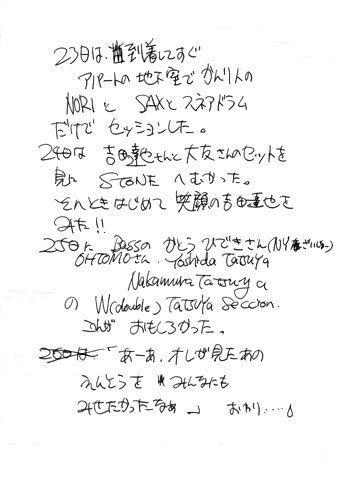 23日は、到着してすぐ
アパートの地下室でかんりんの
NORIと SAXとスネアドラム
だけで セッションした。
24日は 吉田達也さんと大友さんのセットを
見に STONE へむかった。
そのときはじめて 笑顔の吉田達也を
みた!!
25日に Bassの かとうひできさん(NY
OHTOMOさん、Yoshida Tatsuya
Nakamura Tatsuya
の W(double) Tatsuya Section.
これが おもしろかった。
26日は 「あーあ、オレが見たあの
えんとうを みんなにも
みせたかったなぁ」 おわり....